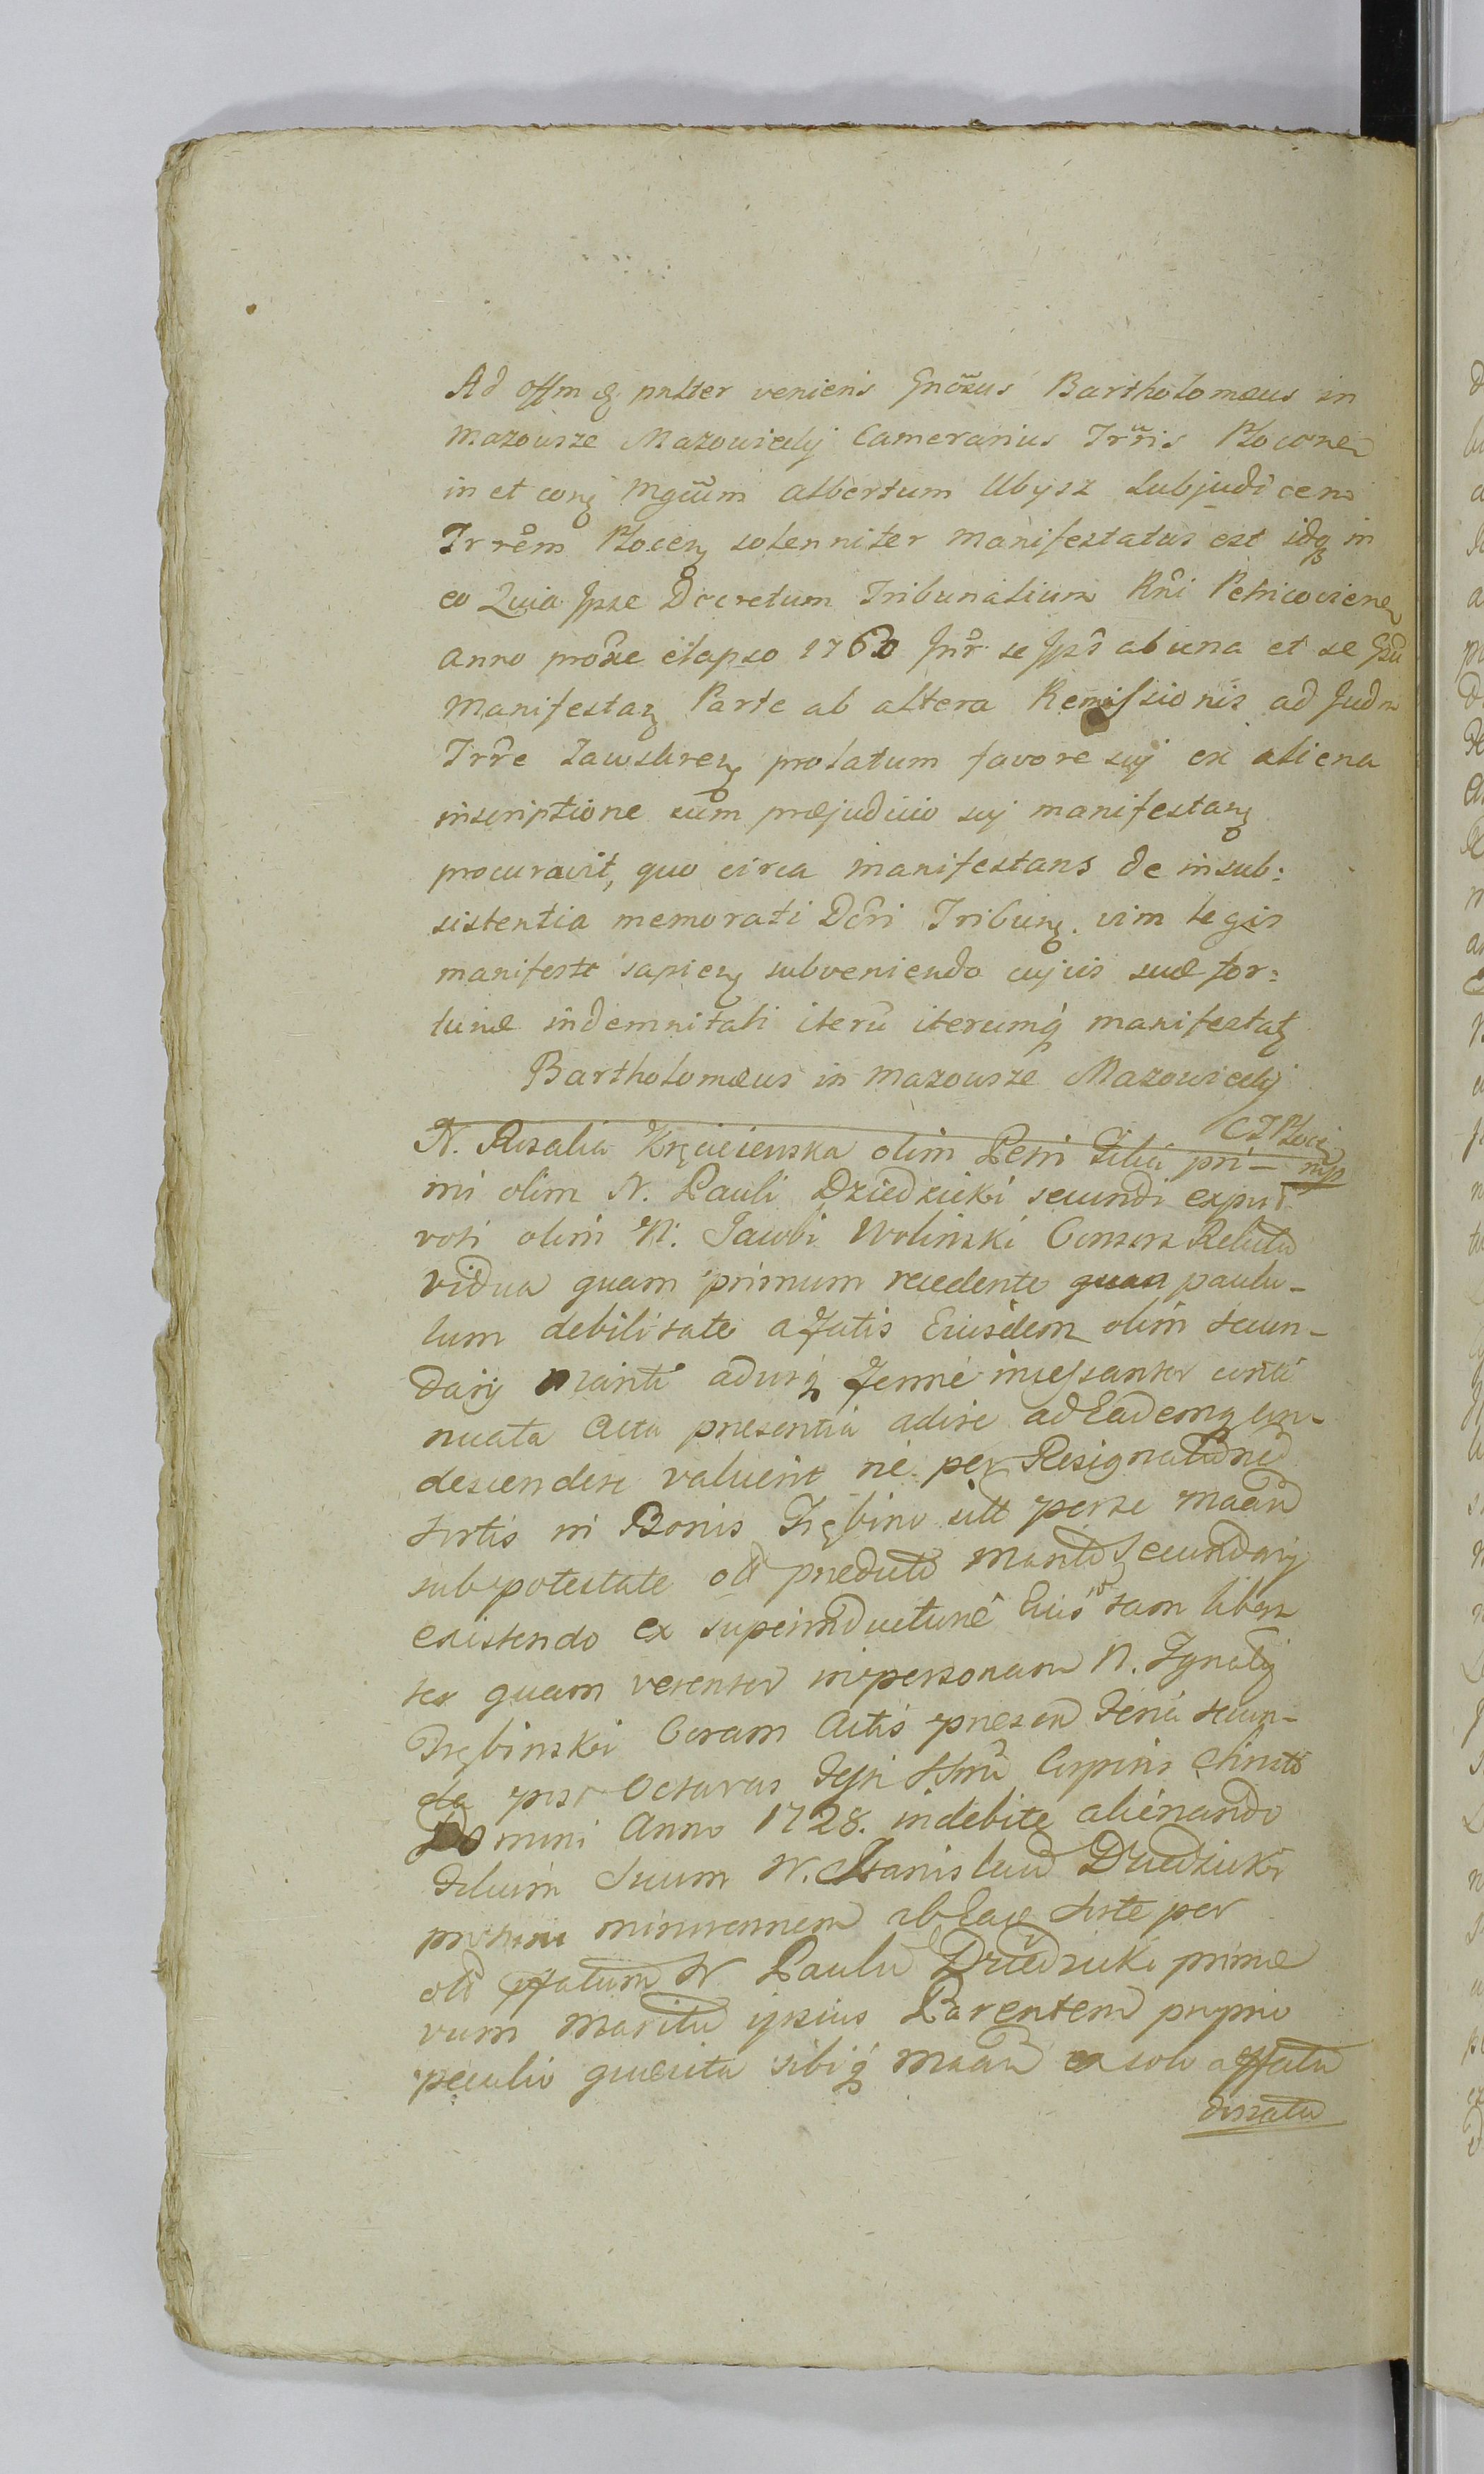 Ad offm & pnlter veniens Gnosus Bartholomæus in
Mazowsze Mazowiecky Camerarius Trris Plocen
in et con Mgcum Albertum Ubysz Subjudicem
Trrem Plocen solenniter manifestatus est idq in
eo Quia Ipse Decretum Tribunalium Rni Petricovien
Anno proxe elapso 1760 Intr se Ipsm ab una et se Gsu
Manifestan Parte ab altera Remissionis ad Judm
Trre Zawskren prolatum favore suy ex aliena
inscriptione cum præjudicio suy manifestan
procuravit, quo circa manifestans de insub:
sistentia memorati Dcri Tribun. vim legis
manifeste sapien subveniendo cujus suæ for:
tunæ indemnitati iteru iterumq manifestat
Bartholomæus in Mazowsze Mazowiecky
CZPłoc
mp
N. Rosalia olim Petri Filia pri-
mi olim N. Pauli Dziedzicki secundi
voti olim N. Jacobi Wolinski Consors Relicta
vidua quam primum recedente paulu-
lum debilitate ætatis Eiusdem olim secun-
darij mariti adusq ferme incessanter conti
nuata Acta presentia adire ad Eademq con-
descendere valuerit ne per Resignatione
sortis in Bonis Trębino sitt per se maan
sub potestate ol predicti Mariti Secundarij
existendo ex superinductione Eius tam libere
ter quam verenter in personam N. Ignatij
Trębinski Coram Actis presen Feria secun-
da post Octavas Festi Corporis Christi
Domini Anno 1728. indebite alienando
Filium Suum N. Stanislau Dziedzicki
minorennem ab Eade sorte per
olim N. Paulu Dziedzicki prime
vum Maritu ipsius Parentem proprio
peculio quæsita sibiq maan ex solo affectu
donata